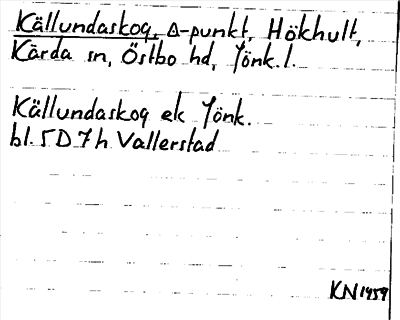 Källundaskog, Δ-punkt, Hökhult,
Kärda sn, Östbo hd, Jönk. l.
Källundaskog ek Jönk.
bl. 5 D 7 h Vallerstad
KN 1959